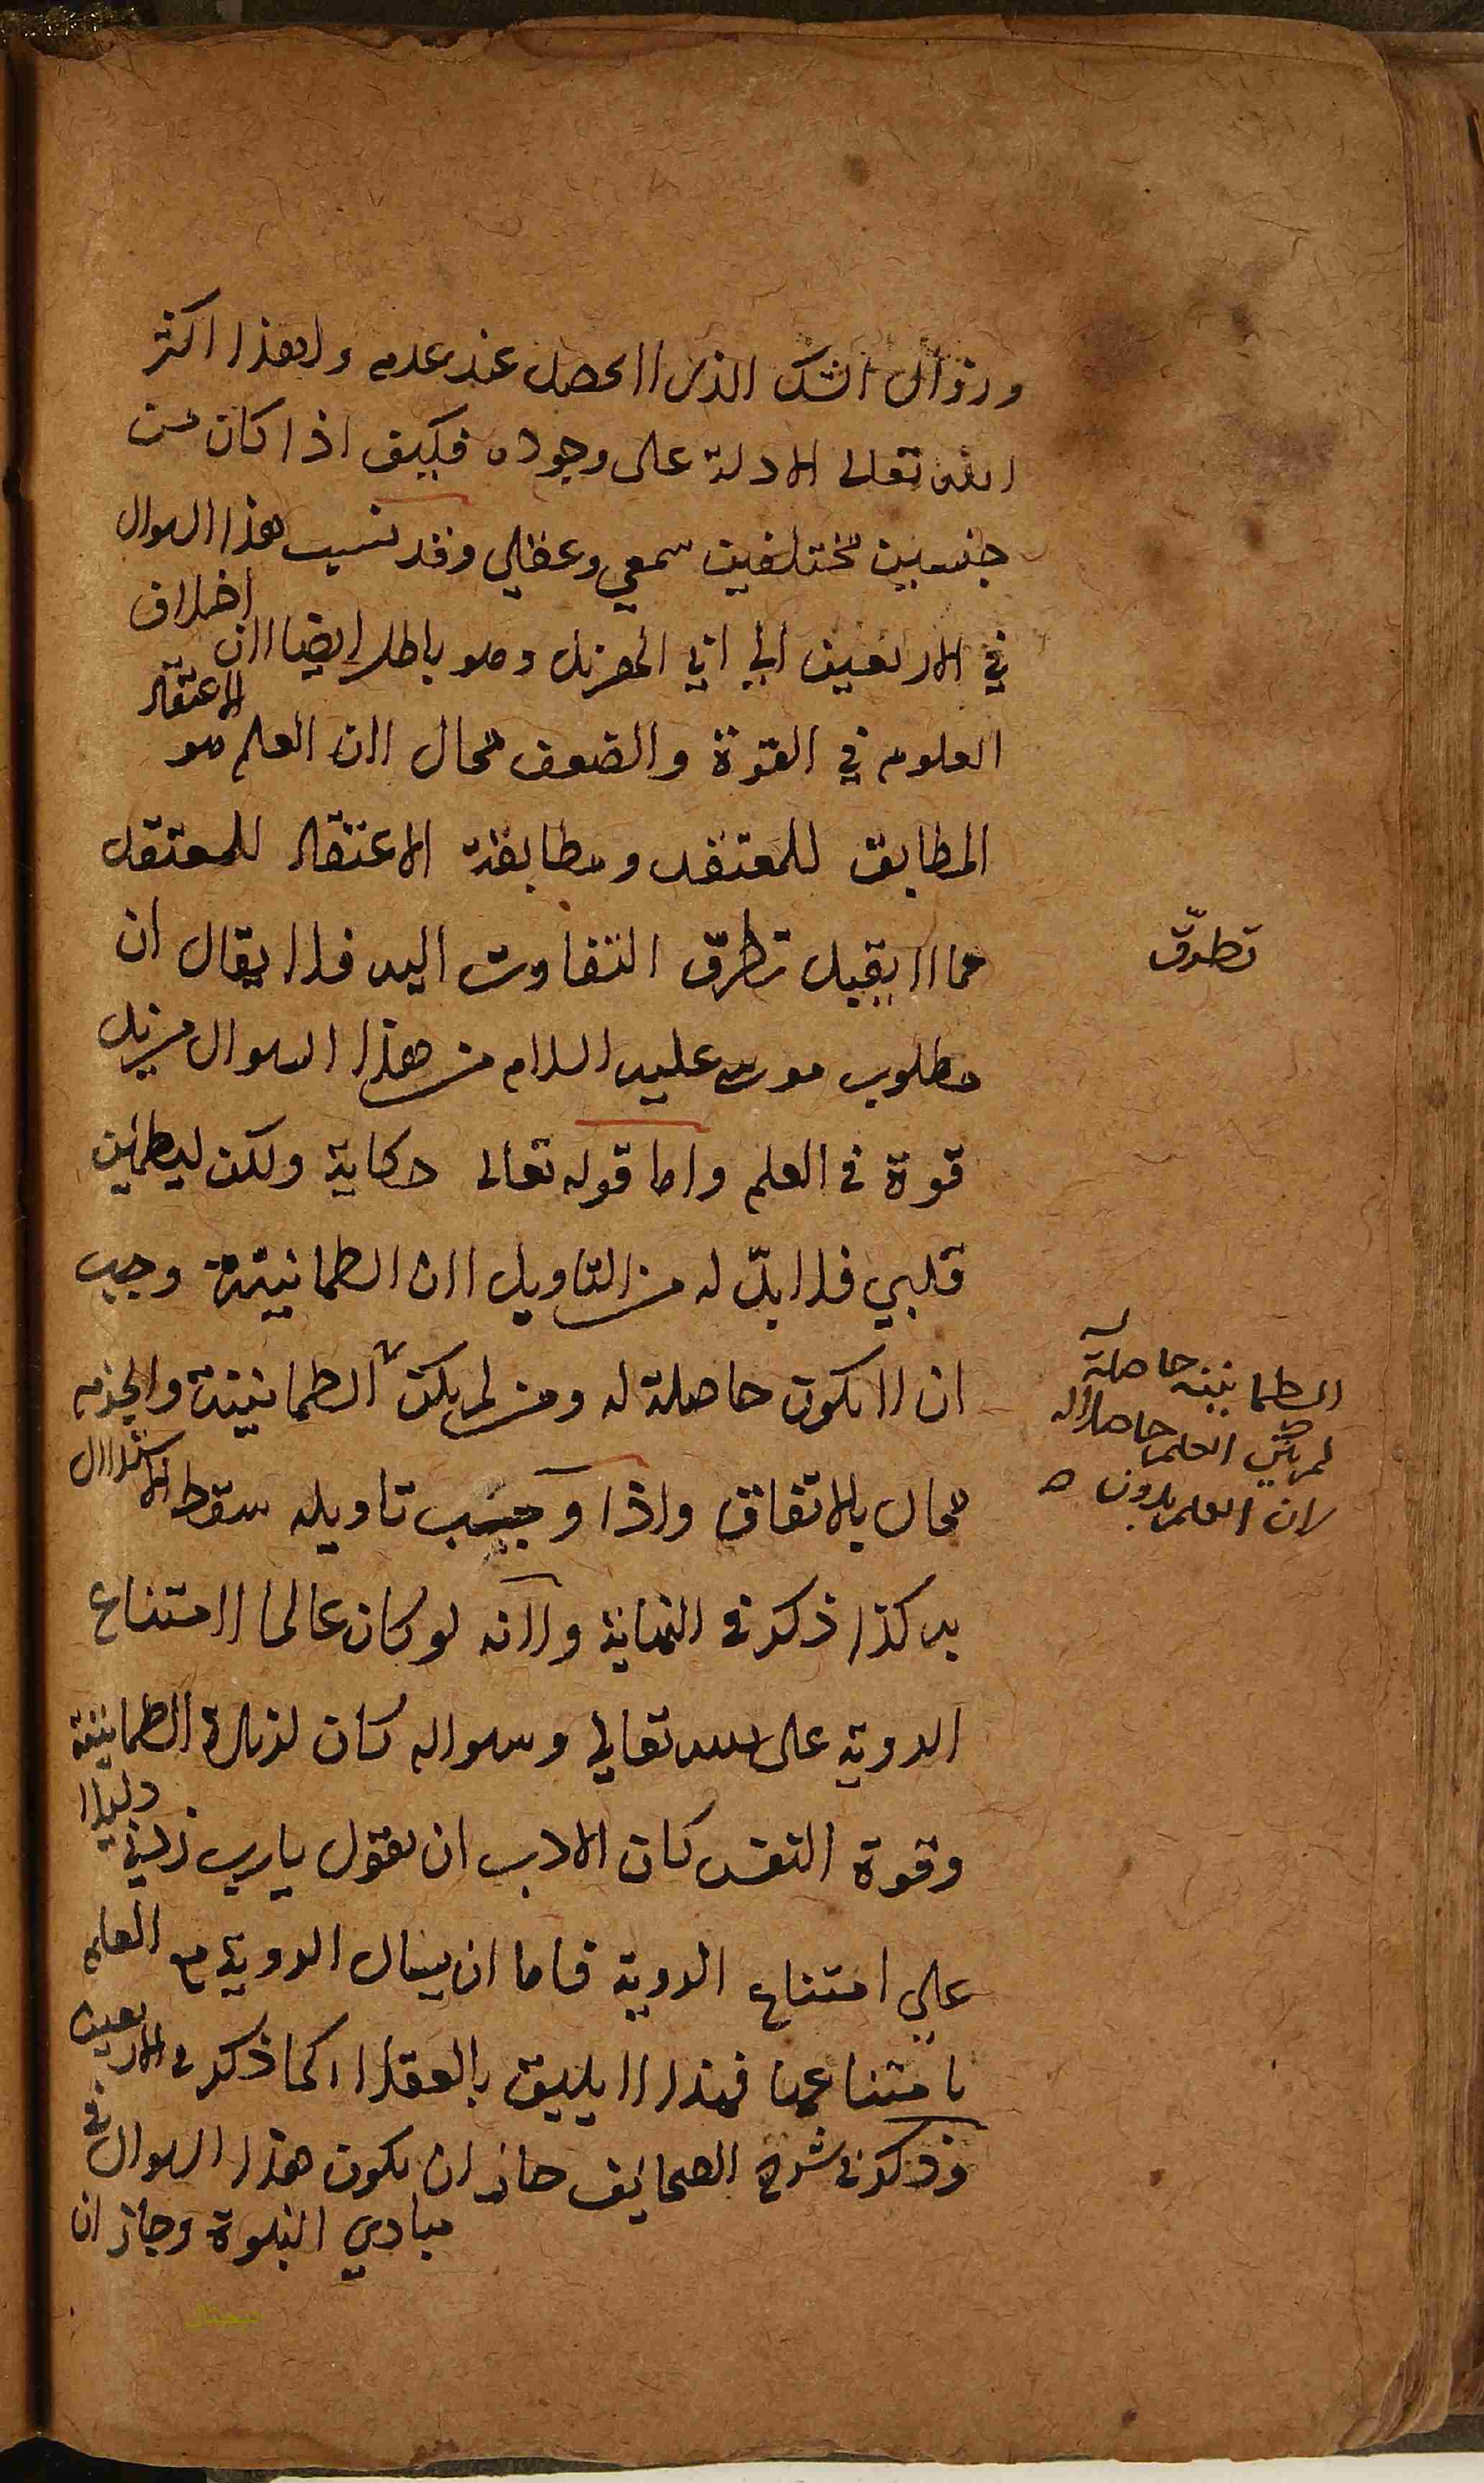 وزوال الشك الذى لا يحصل عند عدمه ولهذا اكثر
الله تعالى الادلة على وجوده فكيف اذا كان من
جنسين مختلفين سمعي وعقلي وقد نسب هذا السوال
في الاربعين الى ابي الهزيل وهو باطل ايضا لان اختلاف
العلوم في القوة والضعف محال لان العلم هو الاعتقاد
المطابق للمعتقد ومطابقة الاعتقاد للمعتقد
مما لا يقبل تطرق التفاوت اليه فلا يقال ان
مطلوب موسى عليه السلام من هذا السوال مزيد
قوة فى العلم واما قوله تعالى حكاية ولكن ليطمئن
قلبي فلا بدّ له من التاويل لان الطمانينة وجب
ان لا تكون حاصلة له ومن لم يكن الطمانينة والجزم
محال بالاتفاق واذا وجب تاويله سقط الاستدلال
به كذا ذكر فى النهاية ولانه لو كان عالما لامتناع
الروية على الله تعالى وسواله كان لزيادة الطمانينة
وقوة النفس كان الادب ان يقول يا رب زدني دليلا
على امتناع الروية فاما ان يسال الروية مع العلم
بامتناعها فهذا لا يليق بالعقلا كما ذكر فى الاربعين
وذكر فى شرح الصحائف جاز ان يكون هذا السوال فى
مبادي النبوة وجاز ان
تطرّق
الطمانينة حاصلة
لم يكن العلم حاصلا له
لان العلم بدون